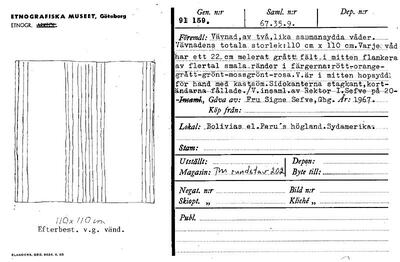 ETNOGRAFISKA MUSEET, Göteborg
ETNOGR.
Gen. n:r
91 159.
Saml. n:r
67.35.9.
Dep. n:r
Föremål: Vävnad,av två,lika sammansydda våder.
Vävnadens totala storlek:110 cm x 110 cm.Varje våd
har ett 22 cm melerat grått fält,i mitten flankera
av flertal smala ränder i färgerna:rött-orange-
grått-grönt-mossgrönt-rosa.V.är i mitten hopsydd
för hand med kastsöm.Sidokanterna stagkant,kort-
ändarna fållade./V.insaml.av Rektor I.Sefve på 20-
Insaml., Gåva av: Fru Signe Sefve,Gbg. År: 1967.
Lokal: Bolivias el.Peru's högland.Sydamerika.
Stam:
Utställt:
Depon:
Magasin: TM rundstav 202
Byte till:
Negat. n:r
Bild n:r
Skiopt. „
Kliché „
Publ.
110 x 110 cm
Efterbest. v.g. vänd.